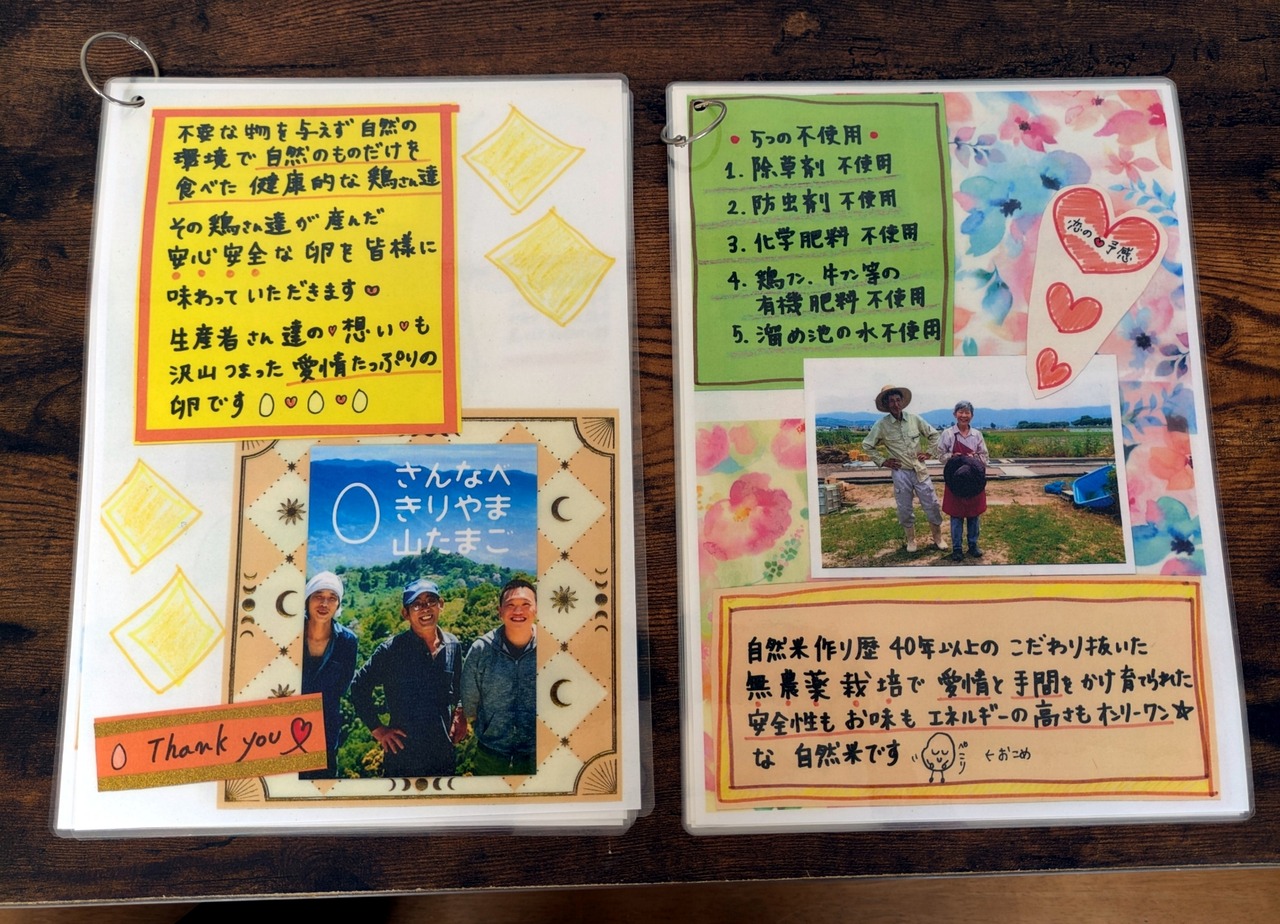 不要な物を与えず自然の
環境で自然のものだけを
食べた 健康的な鶏さん達
その鶏さん達が産んだ
安心安全な卵を皆様に
味わっていただきます
生産者さん達の想いも
沢山つまった愛情たっぷりの
卵です
さんなべ
きりやま
山たまご
Thank you
5つの不使用
1. 除草剤 不使用
2. 防虫剤 不使用
3. 化学肥料 不使用
4. 鶏フン、牛フン等の
有機肥料 不使用
5. 溜め池の水不使用
恋の予感
自然米作り歴 40年以上の こだわり抜いた
無農薬栽培で 愛情と手間をかけ育てられた
安全性もお味も エネルギーの高さもオンリーワン☆
な 自然米です
ペコリ
←おこめ